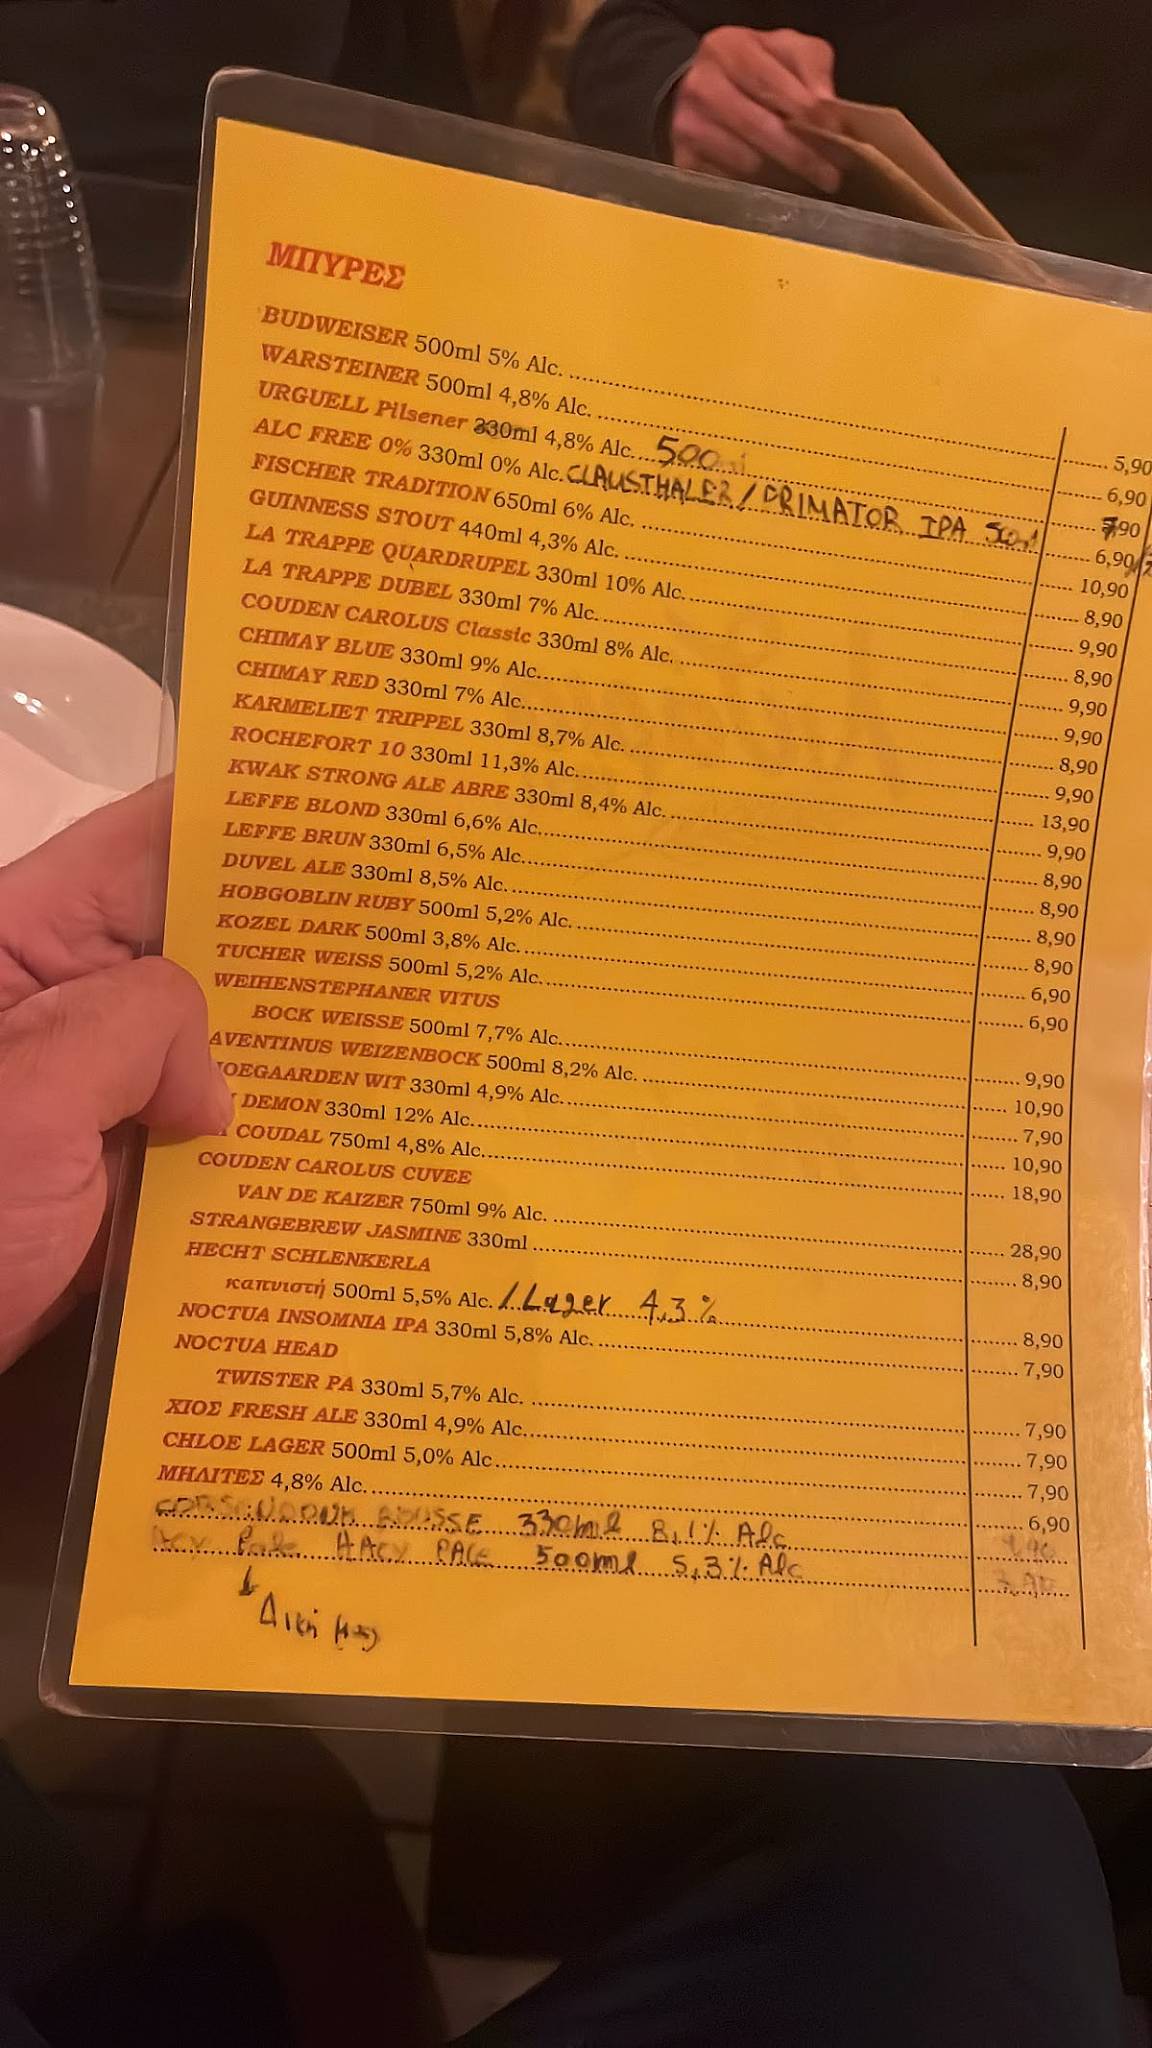 ΜΠΥΡΕΣ
BUDWEISER 500ml 5% Alc. 5,90
WARSTEINER 500ml 4,8% Alc. 6,90
URGUELL Pilsener 330ml 4,8% Alc. 500ml 7,90
ALC FREE 0% 330ml 0% Alc. CLAUSTHALER / PRIMATOR IPA 6,90/
FISCHER TRADITION 650ml 6% Alc. 10,90
GUINNESS STOUT 440ml 4,3% Alc. 8,90
LA TRAPPE QUARDRUPEL 330ml 10% Alc. 9,90
LA TRAPPE DUBEL 330ml 7% Alc. 8,90
COUDEN CAROLUS Classic 330ml 8% Alc. 9,90
CHIMAY BLUE 330ml 9% Alc. 9,90
CHIMAY RED 330ml 7% Alc. 8,90
KARMELIET TRIPPEL 330ml 8,7% Alc. 9,90
ROCHEFORT 10 330ml 11,3% Alc. 13,90
KWAK STRONG ALE ABRE 330ml 8,4% Alc. 9,90
LEFFE BLOND 330ml 6,6% Alc. 8,90
LEFFE BRUN 330ml 6,5% Alc. 8,90
DUVEL ALE 330ml 8,5% Alc. 8,90
HOBGOBLIN RUBY 500ml 5,2% Alc. 8,90
KOZEL DARK 500ml 3,8% Alc. 6,90
TUCHER WEISS 500ml 5,2% Alc. 6,90
WEIHENSTEPHANER VITUS
BOCK WEISSE 500ml 7,7% Alc. 9,90
AVENTINUS WEIZENBOCK 500ml 8,2% Alc. 10,90
HOEGAARDEN WIT 330ml 4,9% Alc. 7,90
DEMON 330ml 12% Alc. 10,90
COUDAL 750ml 4,8% Alc. 18,90
COUDEN CAROLUS CUVEE
VAN DE KAIZER 750ml 9% Alc. 28,90
STRANGEBREW JASMINE 330ml 8,90
HECHT SCHLENKERLA
καπνιστή 500ml 5,5% Alc. / Lager 4,3% 8,90
NOCTUA INSOMNIA IPA 330ml 5,8% Alc. 7,90
NOCTUA HEAD
TWISTER PA 330ml 5,7% Alc. 7,90
ΧΙΟΣ FRESH ALE 330ml 4,9% Alc. 7,90
CHLOE LAGER 500ml 5,0% Alc 7,90
ΜΗΛΙΤΕΣ 4,8% Alc. 6,90
330ml 8,1% Alc
500ml 5,3% Alc